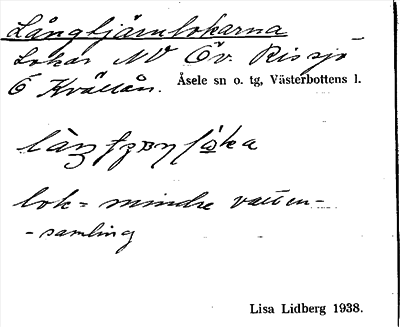 Långtjärnlokarna
Lokar NV Öv. Rissjö
Ö Kvällån. Åsele sn o. tg, Västerbottens l.
lok = mindre vatten-
- samling
Lisa Lidberg 1938.